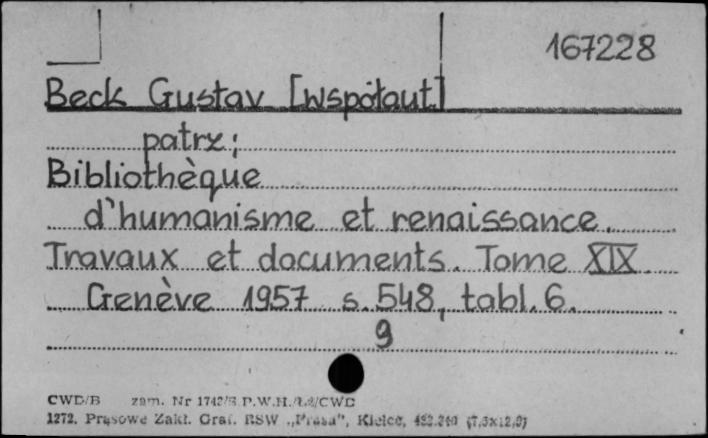 167228
Beck Gustav [współaut.]
patrz:
Bibliothèque
d'humanisme et renaissance.
Travaux et documents. Tome XIX
Genève 1957 s. 548, tabl. 6.
9
CWD/B zam. Nr P.W.H.
1272. Prasowe Zakł. Graf. RSW „Prasa”, Kielce,